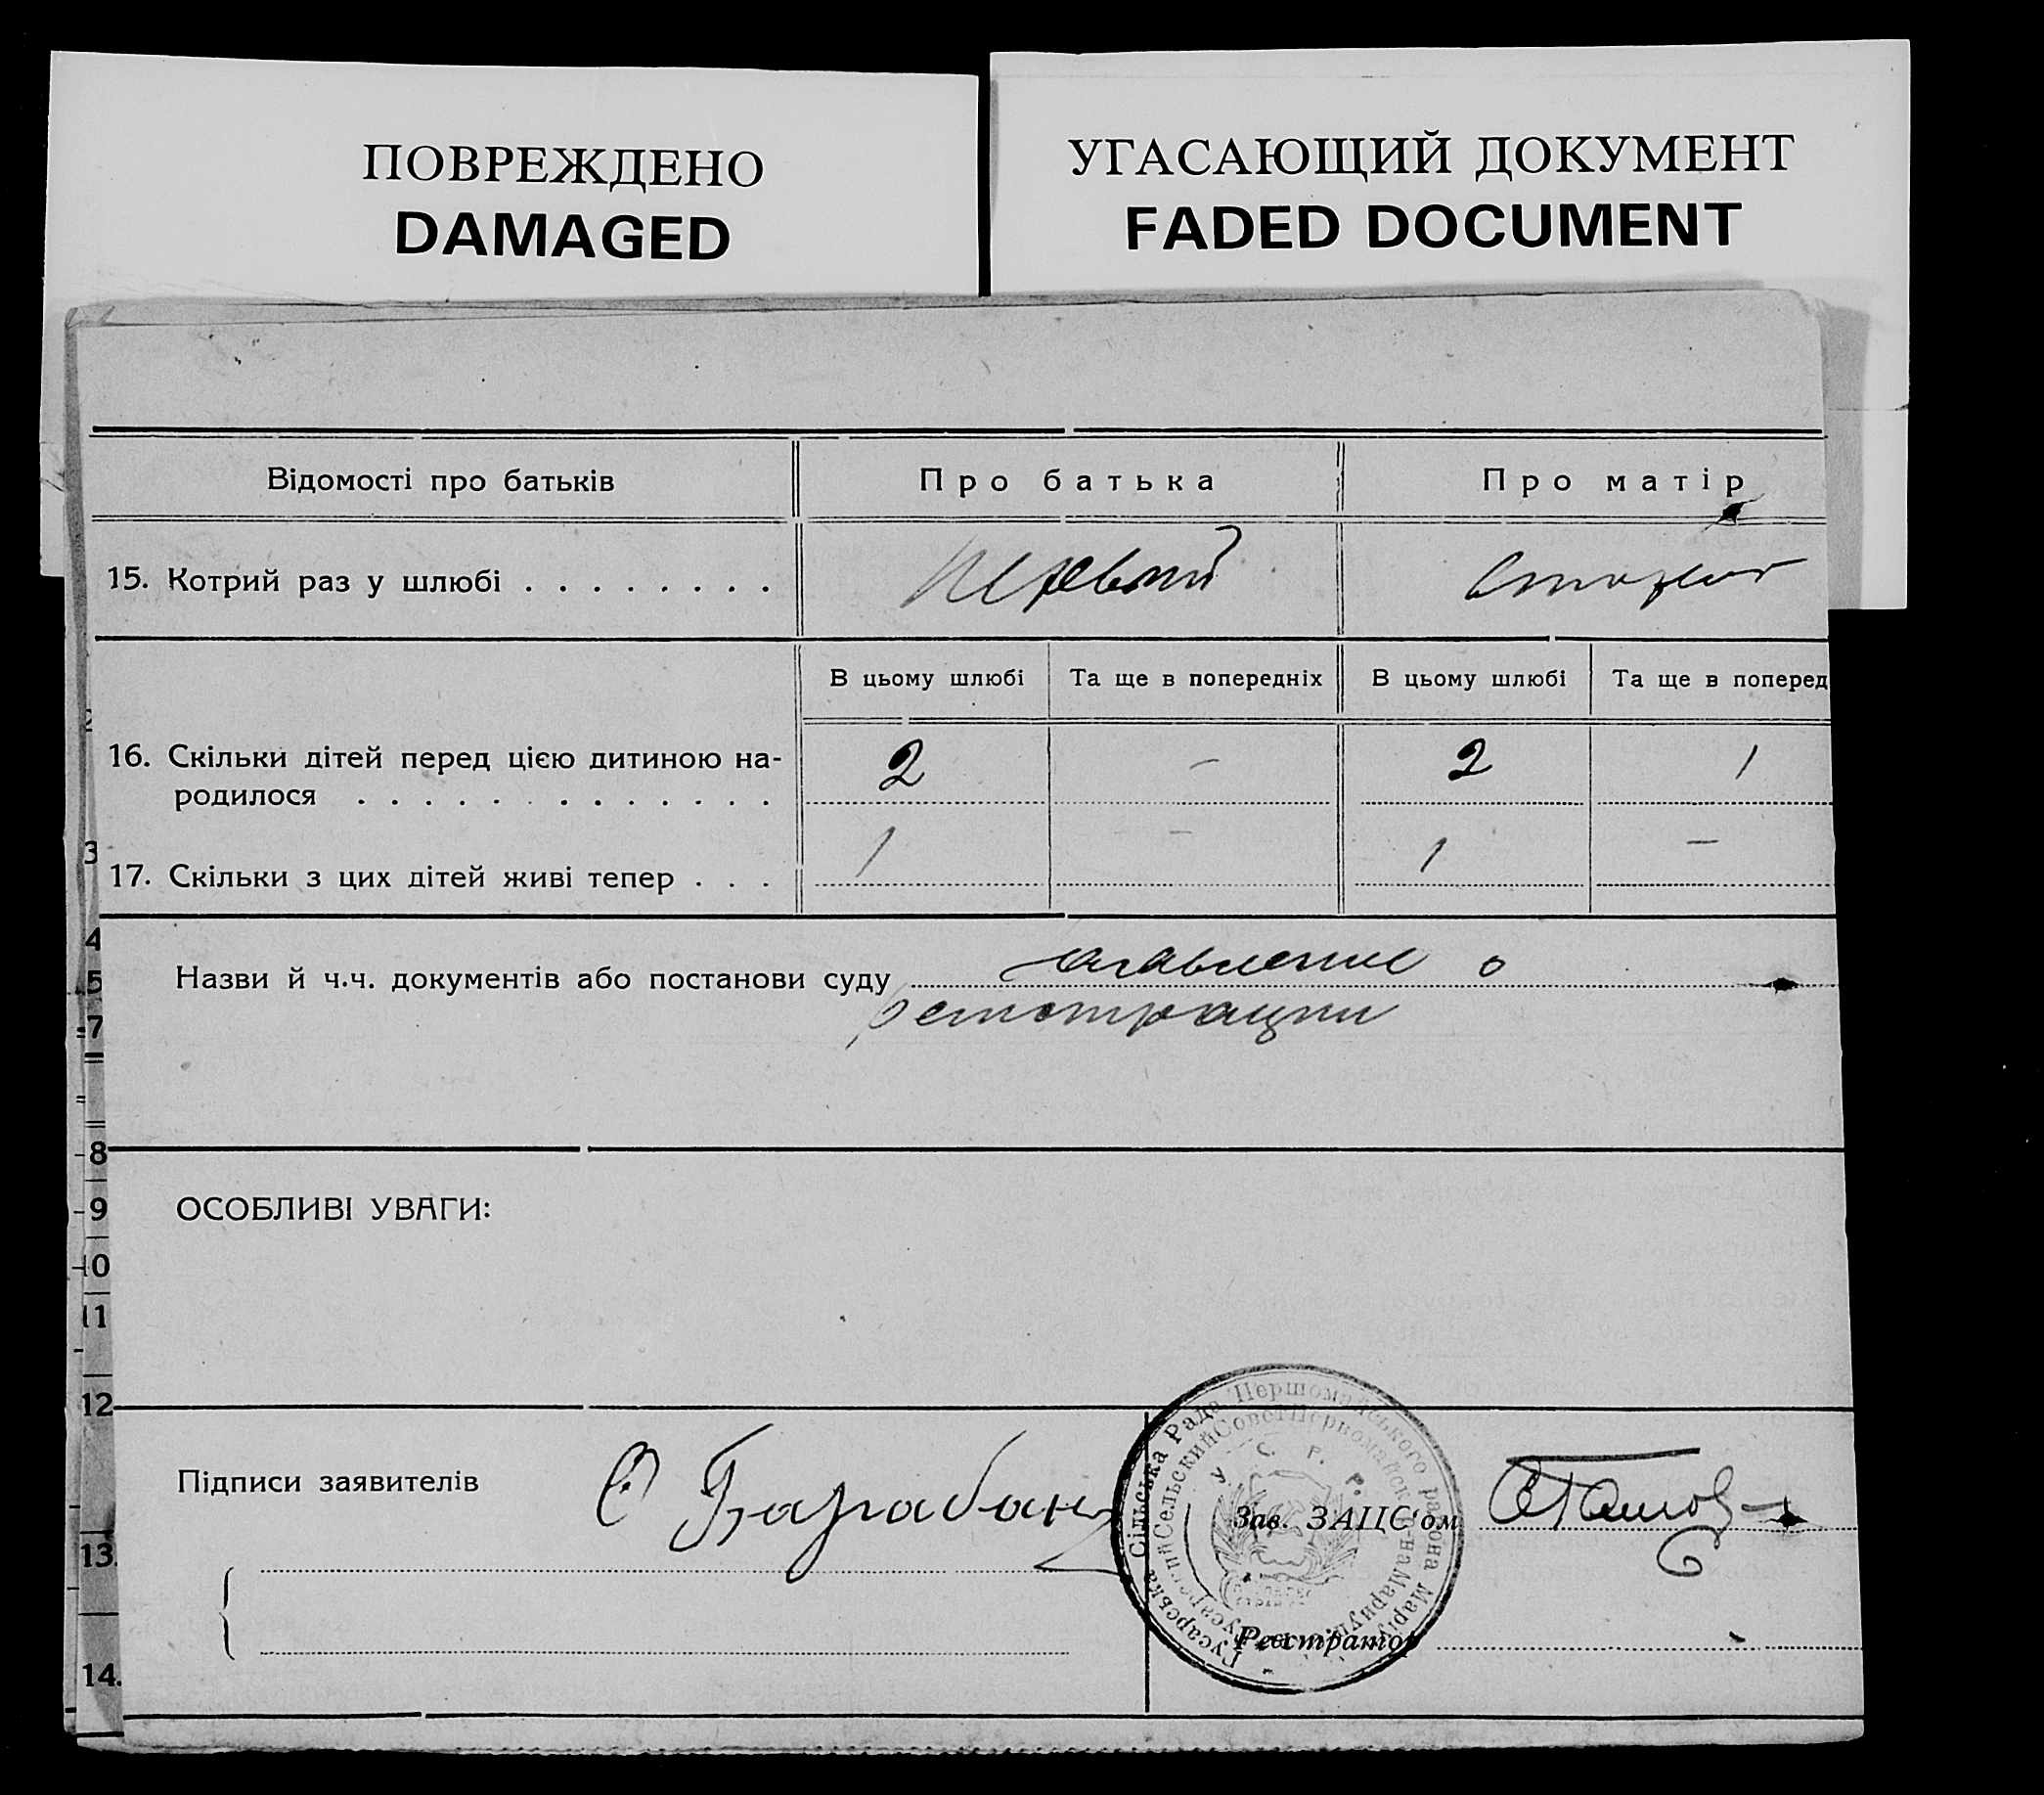 ПОВРЕЖДЕНО
DAMAGED
УГАСАЮЩИЙ ДОКУМЕНТ
FADED DOCUMENT
Відомості про батьків Про батька Про матір
15. Котрий раз у шлюбі . . . . . . . . первый вторая
В цьому шлюбі Та ще в попередніх В цьому шлюбі Та ще в поперед
16. Скільки дітей перед цією дитиною на-
родилося . . . . . . . . . . . . . 2 – 2 1
17. Скільки з цих дітей живі тепер . . . 1 – 1 –
Назви й ч.ч. документів або постанови суду заявление о
регистрации
ОСОБЛИВІ УВАГИ:
Підписи заявителів Барабан
Зав. ЗАЦС'ом
Реєстратор
Гусарська Сільська Рада Першомайського района
Сельский Совет Первомайск
У. С. Р. Р.
3
4
5
7
8
9
10
11
12
13.
14.